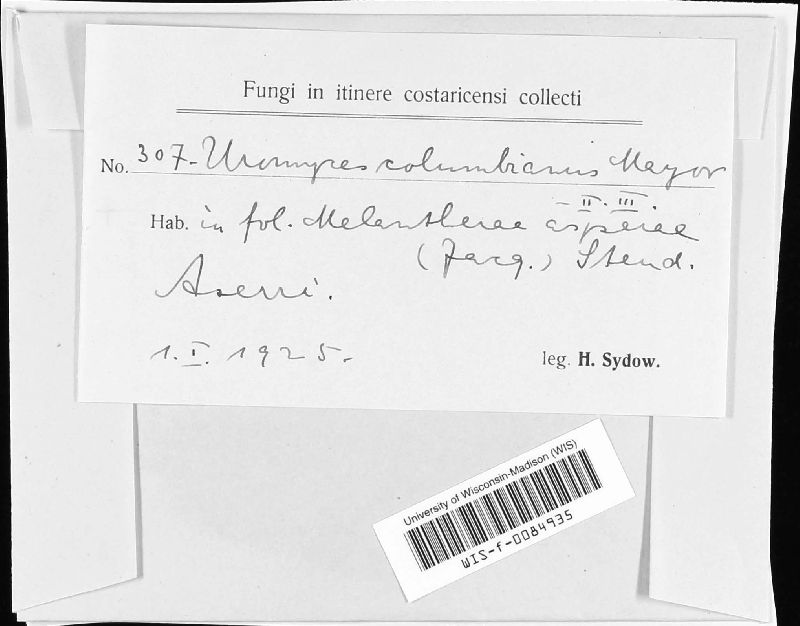 Fungi in itinere costaricensi collecti
No. 307. Uromyces columbianus Mayor
- II. III.
Hab. in fol. Melantherae asperae
(Jacq.) Steud.
Aserri.
1. I. 1925.
leg. H. Sydow.
University of Wisconsin-Madison (WIS)
WIS-f-0084935